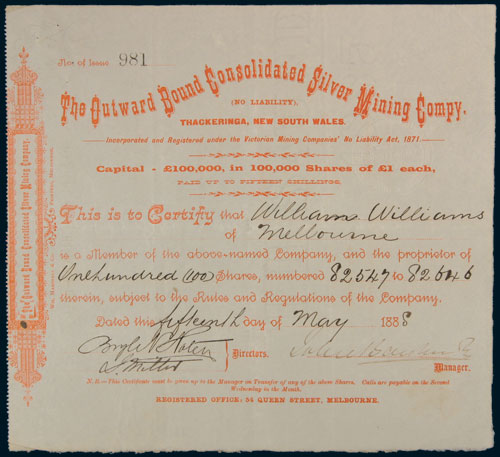 No. of Issue 981
The Outward Bound Consolidated Silver Mining Compy.
(NO LIABILITY),
THACKERINGA, NEW SOUTH WALES.
Incorporated and Registered under the Victorian Mining Companies' No Liability Act, 1871.
Capital - £100,000, in 100,000 Shares of £1 each,
PAID UP TO FIFTEEN SHILLINGS.
This is to Certify that William Williams
of Melbourne
is a Member of the above-named Company, and the proprietor of
One hundred (100) Shares, numbered 82547 to 82646
therein, subject to the Rules and Regulations of the Company.
Dated this fifteenth day of May 1888
Directors.
Manager.
N.B.—This Certificate must be given up to the Manager on Transfer of any of the above Shares. Calls are payable on the Second
Wednesday in the Month.
REGISTERED OFFICE: 54 QUEEN STREET, MELBOURNE.
The Outward Bound Consolidated Silver Mining Company,